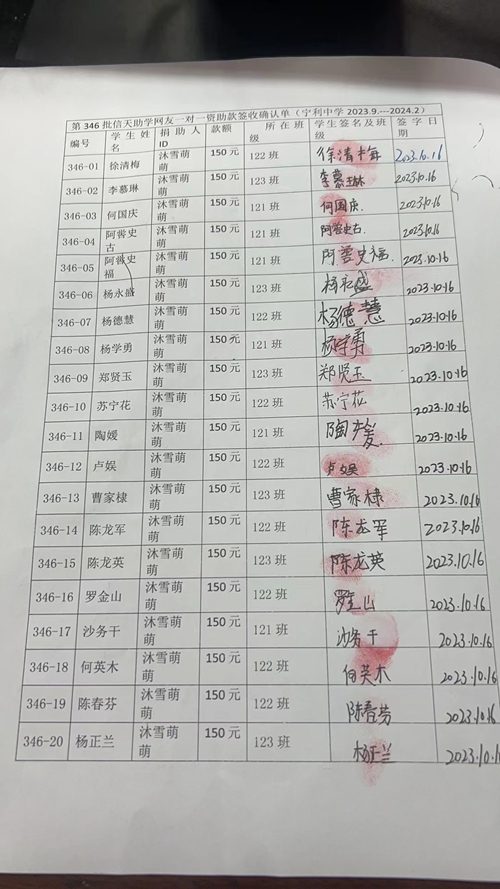 第 346 批信天助学网友一对一资助款签收确认单（宁利中学 2023.9.---2024.2）
编号 学生姓名 捐助人 ID 款额 所在班级 学生签名及班级 签字日期
346-01 徐清梅 沐雪萌萌 150 元 122 班 徐清梅 2023.10.16
346-02 李慕琳 沐雪萌萌 150 元 123 班 李慕琳 2023.10.16
346-03 何国庆 沐雪萌萌 150 元 121 班 何国庆. 2023.10.16
346-04 阿喾史古 沐雪萌萌 150 元 121 班 史古. 2023.10.16
346-05 阿喾史福 沐雪萌萌 150 元 121 班 史福 2023.10.16
346-06 杨永盛 沐雪萌萌 150 元 123 班 杨永盛 2023.10.16
346-07 杨德慧 沐雪萌萌 150 元 122 班 杨德慧 2023.10.16
346-08 杨学勇 沐雪萌萌 150 元 121 班 杨学勇 2023.10.16
346-09 郑贤玉 沐雪萌萌 150 元 123 班 郑贤玉 2023.10.16
346-10 苏宁花 沐雪萌萌 150 元 122 班 苏宁花 2023.10.16
346-11 陶嫒 沐雪萌萌 150 元 121 班 陶 2023.10.16
346-12 卢娱 沐雪萌萌 150 元 122 班 卢娱 2023.10.16
346-13 曹家棣 沐雪萌萌 150 元 123 班 曹家棣 2023.10.16
346-14 陈龙军 沐雪萌萌 150 元 122 班 陈龙军 2023.10.16
346-15 陈龙英 沐雪萌萌 150 元 123 班 陈龙英 2023.10.16
346-16 罗金山 沐雪萌萌 150 元 122 班 罗金山 2023.10.16
346-17 沙务干 沐雪萌萌 150 元 121 班 沙务干 2023.10.16
346-18 何英木 沐雪萌萌 150 元 122 班 何英木 2023.10.16
346-19 陈春芬 沐雪萌萌 150 元 122 班 陈春芬 2023.10.16
346-20 杨正兰 沐雪萌萌 150 元 123 班 杨正兰 2023.10.16